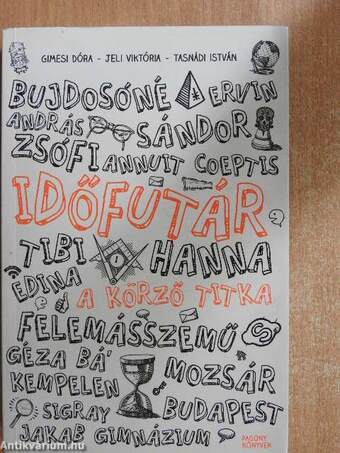 GIMESI DÓRA - JELI VIKTÓRIA - TASNÁDI ISTVÁN
BUJDOSÓNÉ ERVIN
ANDRÁS SÁNDOR
ZSÓFI ANNUIT COEPTIS
IDŐFUTÁR
TIBI HANNA
EDINA
A KÖRZŐ TITKA
FELEMÁSSZEMŰ
GÉZA BÁ'
KEMPELEN MOZSÁR
SIGRAY BUDAPEST
JAKAB GIMNÁZIUM
PAGONY
KÖNYVEK
antikvarium.hu